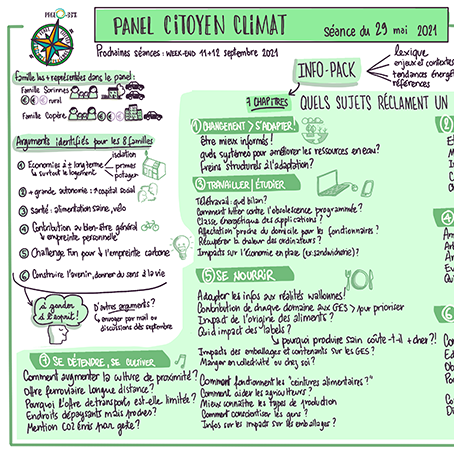 PANEL CITOYEN CLIMAT
Séance du 29 mai 2021
Prochaines séances : WEEK-END 11+12 septembre 2021
INFO-PACK
lexique
enjeux et contextes
tendances énergé
références
Familles les + représentées dans le panel :
Famille Sorinnes
€ € € rural
Famille Copère
€ € €
7 CHAPITRES
QUELS SUJETS RÉCLAMENT UN
Arguments identifiés pour les 8 familles
① Économies à + long terme
↳ surtout le logement
isolation
primes
potager
② + grande autonomie : + capital social
③ Santé : alimentation saine, vélo
④ Contribution au bien-être général
↳ empreinte personnelle
⑤ Challenge fun pour ↓ l'empreinte carbone
⑥ Construire l'avenir, donner du sens à la vie
à garder à l'esprit !
D'autres arguments ?
→ envoyer par mail ou
discussions dès septembre
① CHANGEMENT > S'ADAPTER !
être mieux informés !
quels systèmes pour améliorer les ressources en eau ?
freins structurels à l'adaptation ?
③ TRAVAILLER | ÉTUDIER
Télétravail : quel bilan ?
Comment lutter contre l'obsolescence programmée ?
Classe énergétique des applications ?
Affectation proche du domicile pour les fonctionnaires ?
Récupérer la chaleur des ordinateurs ?
Impacts sur l'économie en place (ex : sandwicherie) ?
⑤ SE NOURRIR
Adapter les infos aux réalités wallonnes !
Contribution de chaque domaine aux GES > pour prioriser
Impact de l'origine des aliments ?
Quid impact des labels ?
↳ pourquoi produire sain coûte-t-il + cher ?!
Impacts des emballages et contenants sur les GES ?
Manger en collectivité ou chez soi ?
Comment fonctionnent les "ceintures alimentaires" ?
Comment aider les agriculteurs ?
Mieux connaître les types de production
Comment conscientiser les gens ?
Infos sur les impacts sur les emballages ?
⑦ SE DÉTENDRE, SE CULTIVER
Comment augmenter la culture de proximité ?
Offre ferroviaire longue distance ?
Pourquoi l'offre de transports est-elle limitée ?
Endroits dépaysants mais proches ?
Mention CO2 émis par geste ?